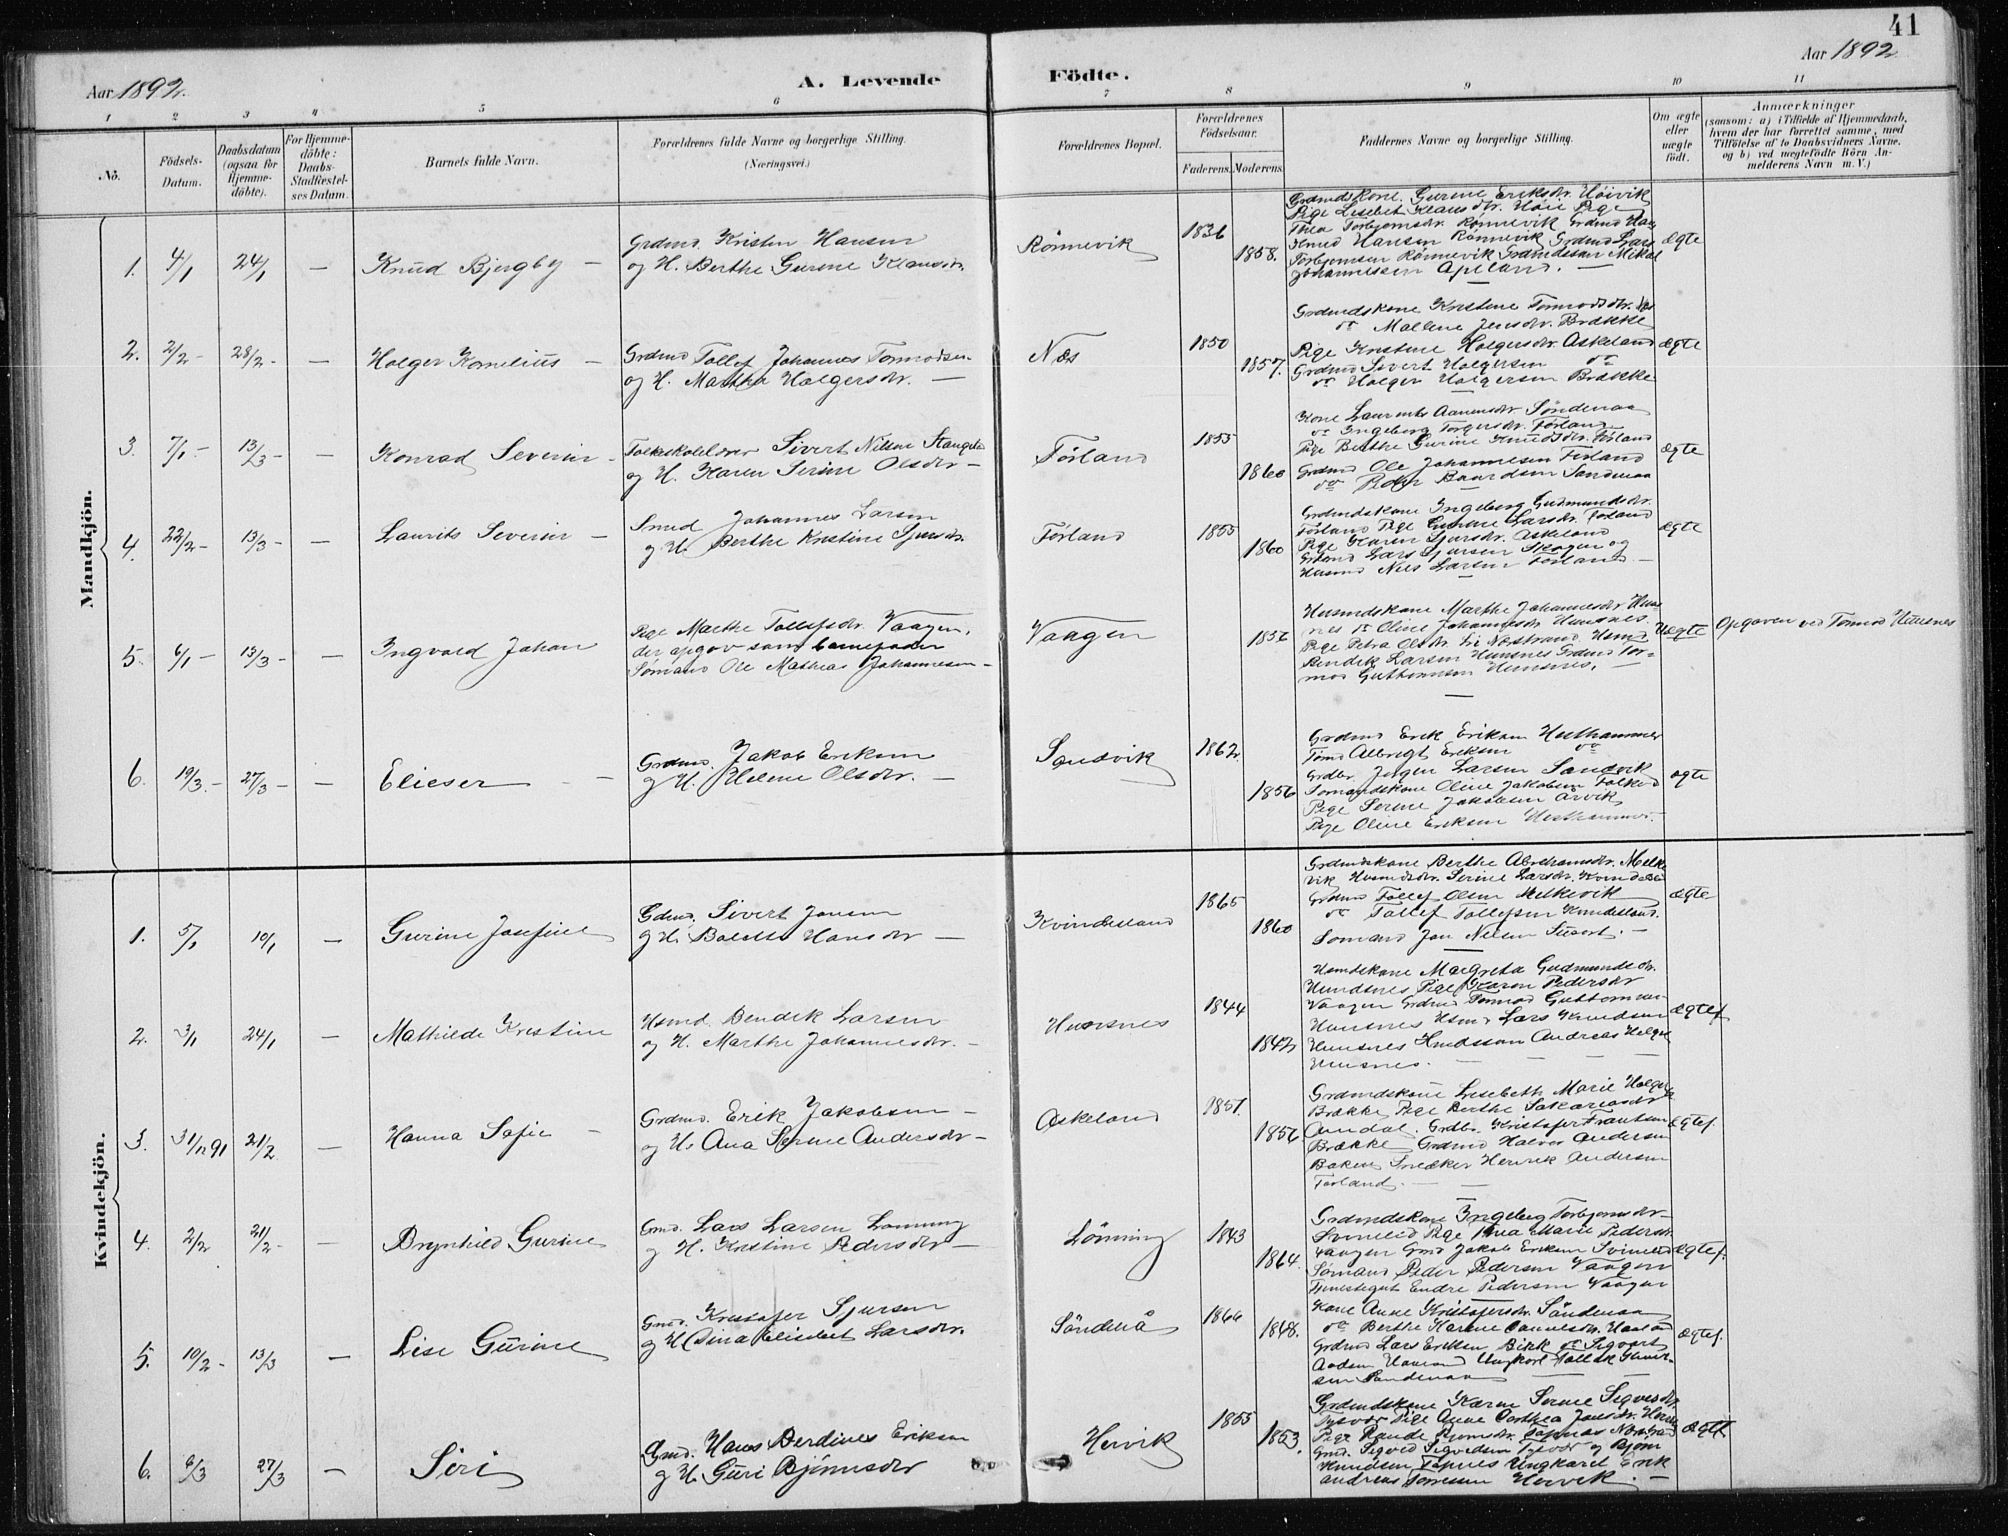 41
Aar 1892.
A. Levende Födte.
Aar 1892
1 2 3 4 5 6 7 8 9 10 11
No.
Födsels-Datum.
Daabsdatum (ogsaa for Hjemme-döbte).
For Hjemme-döbte: Daabs-Stadfæstel-ses Datum.
Barnets fulde Navn.
Forældrenes fulde Navne og borgerlige Stilling. (Næringsvei.)
Forældrenes Bopæl.
Forældrenes Födselsaar.
Faderens. Moderens.
Faddernes Navne og borgerlige Stilling.
Om ægte eller uægte födt.
Anmærkninger
(saasom: a) i Tilfælde af Hjemmedaab, hvem der har forrettet samme, med Tilföielse af to Daabsvidners Navne, og b) ved uægtefödte Börn An-melderens Navn m. V.)
Mandkjön.
1. 4/1 24/1 — Knud Bjergby —
Grdmd. Kristen Hansen
og H. Berthe Gurine Klausdr.
Rønnevik 1836 1858.
Grdmdskone Gurine Eriksdr. Høivik
Pige Lisebet Klausdtr. Høie Pige
Thea Torbjørnsdr. Rønnevik Grdmd
Knud Hansen Rønnevik Grdmd Lars
Torbjørnsen Rønnevik Grdmdssøn Mikal
Johannessen Apeland. —
Ægte
2. 2/2 - 28/2 - — Holger Kornelius —
Grdmd Tollef Johannes Tormodsen
og H. Martha Holgersdr. —
Næs 1850 1857.
Grdmdskone Kristine Tormodsdr. Næs
do Mallene Jensdr. Brække
Pige Kristine Holgersdr. Askeland
Grdmd Sivert Holgersen do
do Holger Holgersen Brække
Ægte
3. 7/1 - 13/3 - — Konrad Severin -
Folkeskolelærer Sivert Nilsen Stangeland
og H. Karen Serine Olsdtr —
Førland 1855 1860
Kone Laurentse Aanensdr. Söndenaa
do Ingeborg Torgersdr. Førland
Pige Berthe Gurine Knudsdr. Førland
Grdmd Ole Johannesen Førland
do Peder Baardsen Søndenaa
Ægte
4. 22/2 - 13/3 - — Laurits Severin —
Smed Johannes Larsen
og H. Berthe Kristine Sjursdr.
Førland 1855 1860
Grdmdskone Ingeborg Gudmundsdr.
Førland Pige Gurine Larsdr. Førland
Pige Karen Sjursdr. Askeland
Grdmd Lars Sjursen Skogen og
Husmd Nils Larsen Førland —
Ægte
5. 6/1 - 13/3 - — Ingvald Johan
Pige Marthe Tollefsdr. Vaagen,
der opgav som barnefader
Sømand Ole Mathias Johannesen —
Vaagen 1856
Husmdskone Marthe Johannesdr. Huns-
nes do Oline Johannesdr Hunsnes.
Pige Petra Olsdr. Nestrand Husmd
Bendik Larsen Hunsnes Grdmd Tor-
mod Guttormsen Hunsnes. —
Uægte
Opgaven ved Tormod Hunsnes
6. 19/3. - 27/3 - — Elieser —
Grdmd. Jakob Eriksen
og H. Helene Olsdtr. —
Sandvik 1862. 1856
Grdmd Erik Eriksen Hesthammer
Tømd Albregt Eriksen do
Grdbr. Jørgen Larsen Sandvik
Sømandskone Oline Jakobsen
Pige Serine Jakobsen Arvik
Pige Oline Eriksen Hesthammer. —
ægte
Kvindekjön.
1. 5/1 10/1 — Gurine Josefine
Gdmd. Sivert Jansen
og H. Bolette Hansdr —
Kvindesland 1865 1860
Grdmdskone Berthe Abrahamsdr. Melke-
vik Husmdsdr. Serine Larsdr. Kvindesland
Grdmd Tollef Olsen Melkevik
do Tollef Tollefsen Kvindesland.
Sømand Jan Nilsen —
ægte
2. 3/1 24/1 — Mathilde Kristine
Husmd. Bendik Larsen
og H. Marthe Johannesdr. —
Hunsnes 1844 1842
Husmdskone Margreta Gudmundsdr.
Hundsnes Pige Karen Pedersdr
Vaagen Grdmd Tormod Guttormsen
Hunsnes Husmd Lars Knudsen
Hunsnes Husmdssøn Andreas
Hunsnes.
Ægtef
3. 31/12 91 21/2 — Hanna Sofie —
Grdmd. Erik Jakobsen —
og H. Ana Serine Andersdr —
Askeland 1857. 1856
Grdmdskone Lisebeth Marie
Brække Pige Berthe Sakariasdr
Aundal. Grdbr. Kristofer Frantsen
Brække Grdmd Halvor Andersen
Bakken Snedker Henrik Andersen
Førland. —
Ægtef.
4. 2/2 21/2 - — Brynhild Gurine
Gmd. Lars Larsen Lønning
og H. Kristine Pedersdtr —
Lönning 1843 1864.
Grdmdskone Ingeborg Torbjørnsdr
Svineli Pige Ana Marie Pedersdr.
Vaagen Gmd Jakob Eriksen Svineli
Sømand Peder Pedersen Vaagen
Tjenestegut Endre Pedersen Vaagen
Ægtef.
5. 10/2 - 13/3 — Lise Gurine
Gmd. Kristofer Sjursen
og H. Dina Elisebet Larsdr.
Söndenå 1866 1848.
Kone Anne Kristofersdr. Söndenaa
do Berthe Karine
Grdmd Lars Eriksen Birk do Sigvart
Ungkarl
Søndenaa —
Ægtef.
6. 6/3 27/3 — Siri
Gmd. Hans Berdines Eriksen
og H. Guri Bjørnsdtr
Hervik 1855 1853.
Grdmdskone Karen Serine Sigvesdr.
Tysvær Pige Anne Dorthea Jonsdr. Hervik
Pige Rande Bjørnsdr. Topnes
Gmd. Sigved Sigvedsen Tysvær og Bjørn
Knudsen Topnes Ungkarl Erik
Andreas Hervik. —
Ægtef